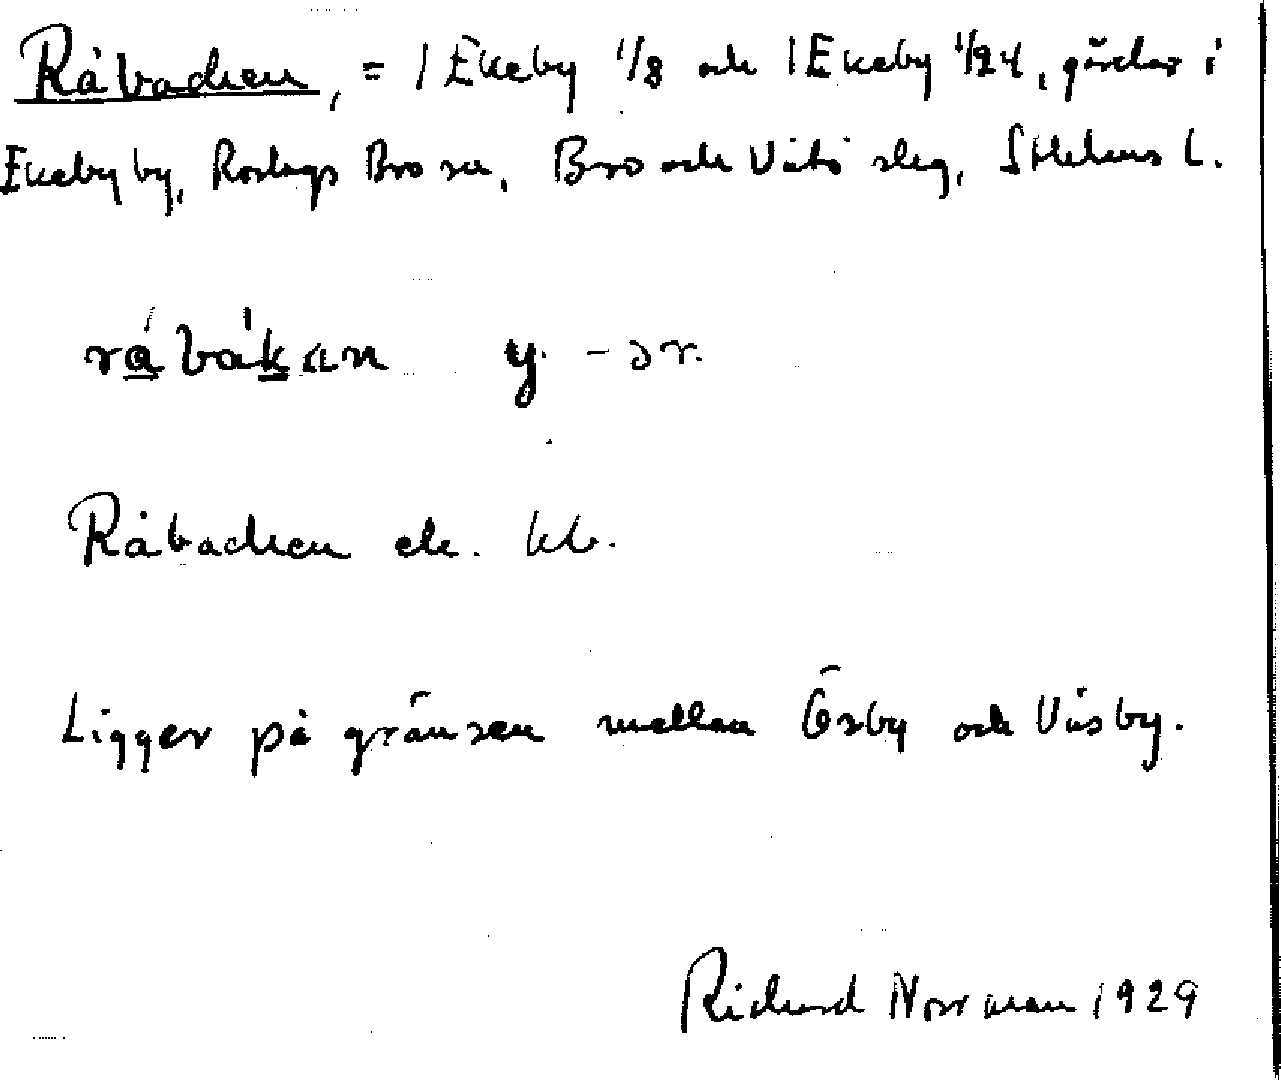 Råbacken, = 1 Ekeby 1/8 och 1 Ekeby 1/24, gårdar i
Ekeby by, Roslags Bro sn, Bro och Vätö slg, Sthlms L.
råbákan y. -ər.
Råbacken ek. kb.
Ligger på gränsen mellan Ösby och Väsby.
Richard Norrman 1929